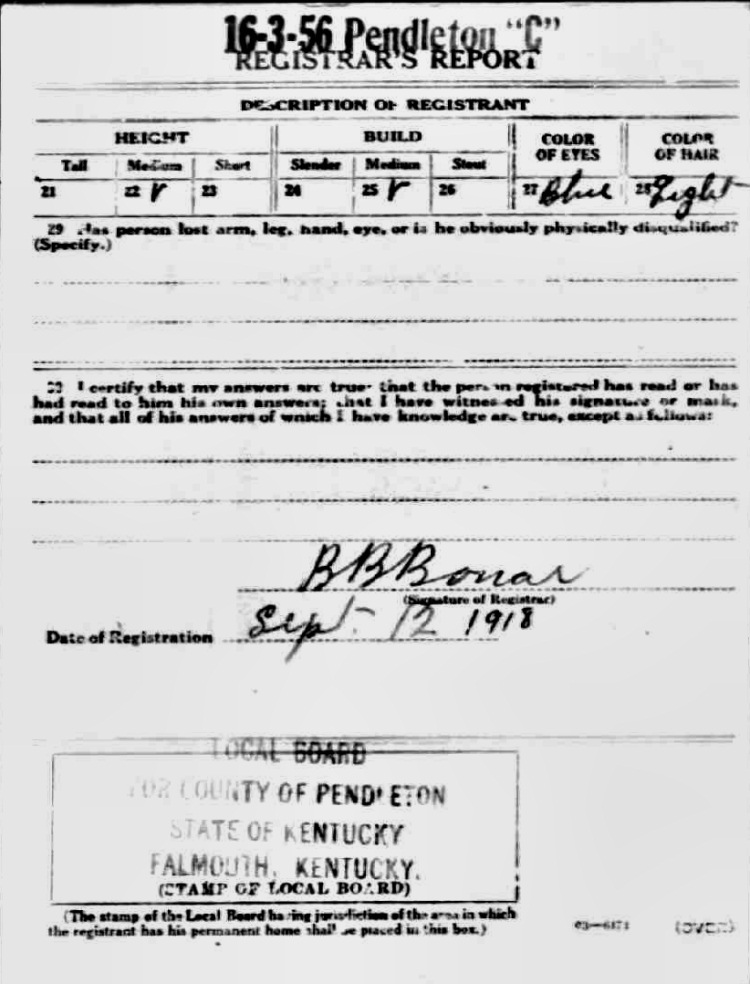 16-3-56 Pendleton "C"
REGISTRAR'S REPORT
DESCRIPTION OF REGISTRANT
HEIGHT BUILD COLOR OF EYES COLOR OF HAIR
Tall Medium Short Slender Medium Stout
21 22 ✓ 23 24 25 ✓ 26 27 Blue 28 Light
29 Has person lost arm, leg, hand, eye, or is he obviously physically disqualified?
(Specify.)
30 I certify that my answers are true; that the person registered has read or has
had read to him his own answers; that I have witnessed his signature or mark,
and that all of his answers of which I have knowledge are true, except as follows:
B B Bonar
(Signature of Registrar)
Date of Registration Sept. 12 1918
LOCAL BOARD
FOR COUNTY OF PENDLETON
STATE OF KENTUCKY
FALMOUTH, KENTUCKY.
(STAMP OF LOCAL BOARD)
(The stamp of the Local Board having jurisdiction of the area in which
the registrant has his permanent home shall be placed in this box.)
03—6171 (OVER)